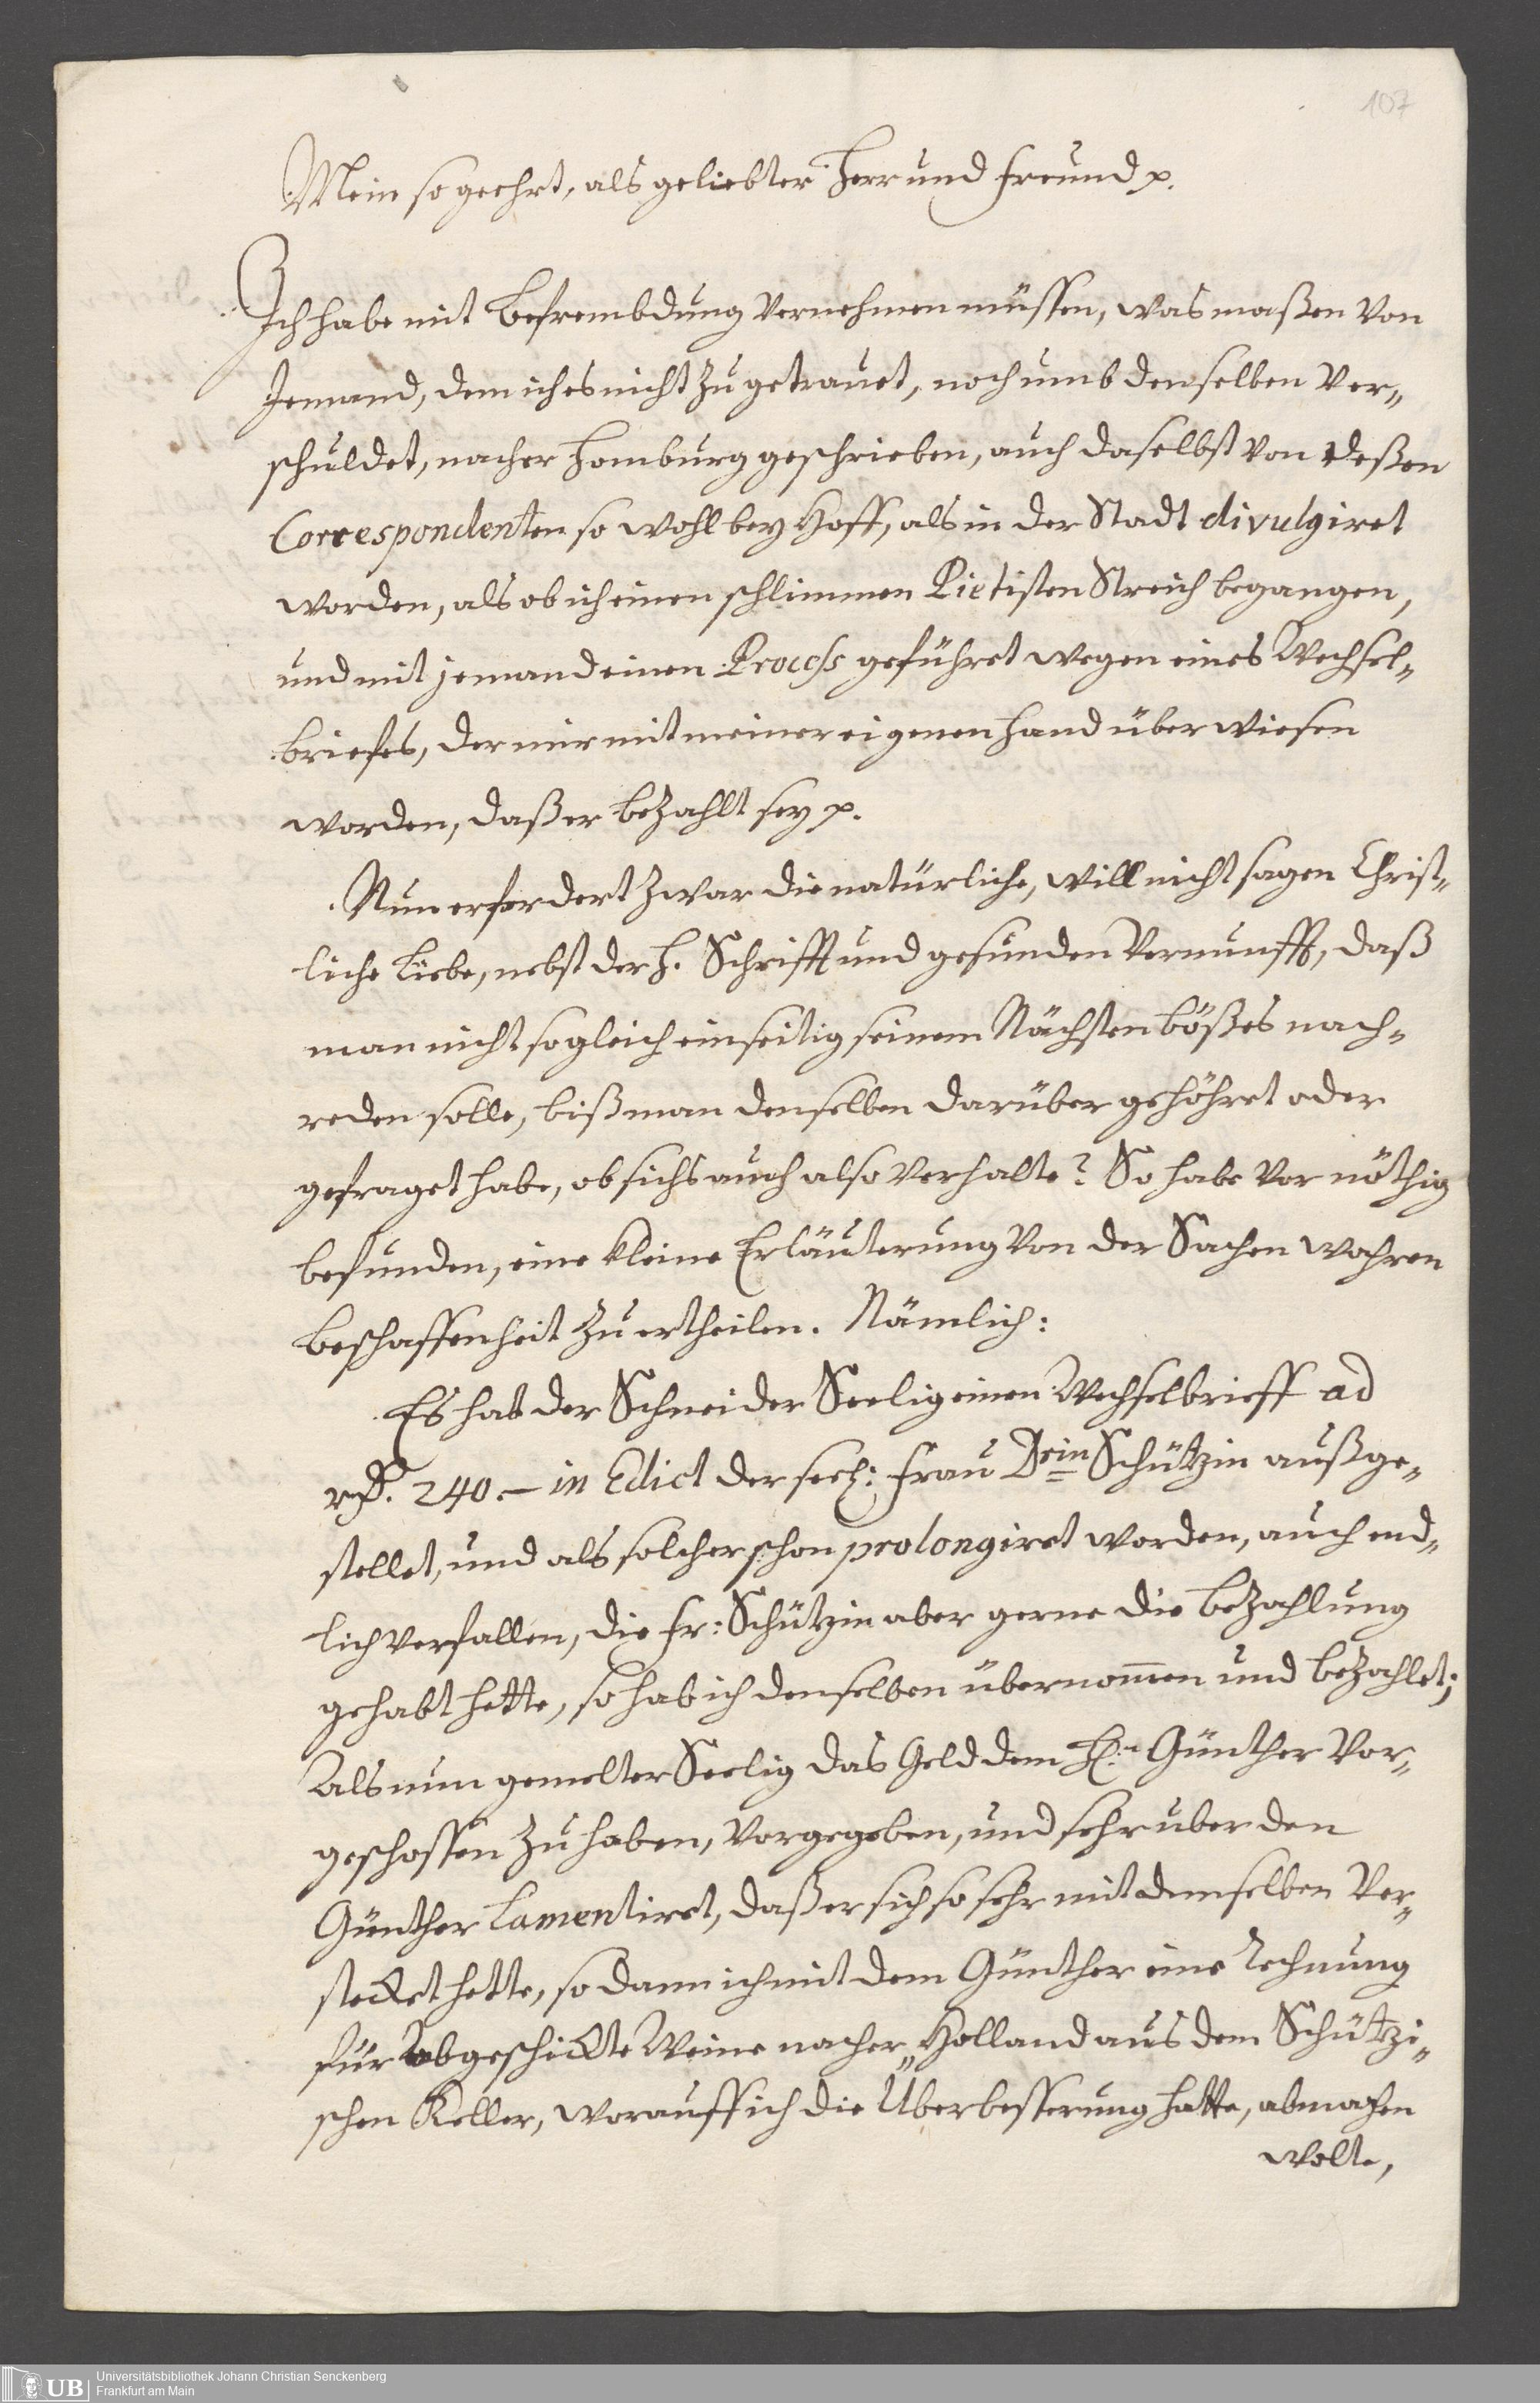 107
Mein so geehrt, als geliebter Herr und Freund p.
Ich habe mit Befrembdung vernehmen müssen, was maßen von
Jemand, dem ich es nicht zugetrauet, noch umb denselben ver„
schuldet, nacher Homburg geschrieben, auch daselbst von deßen
Correspondenten so wohl bey Hoff, als in der Stadt divulgiret
worden, als ob ich einen schlimmen Pietisten Streich begangen,
und mit jemand einen Process geführet wegen eines Wechsel„
briefes, der mir mit meiner eigenen Hand überwiesen
worden, daß er bezahlt sey p.
Nun erfordert zwar die natürliche, will nicht sagen Christ„
liche Liebe, nebst der H. Schrifft und gesunden Vernunfft, daß
man nicht sogleich einseitig seinem Nächsten bößes nach„
reden solle, biß man denselben darüber gehöhret oder
gefraget habe, ob sichs auch also verhalte? So habe vor nöthig
befunden, eine kleine Erläuterung von der Sachen wahren
beschaffenheit zu ertheilen. Nämlich:
Es hat der Schneider Seelig einen Wechselbrieff ad
240.— in Edict der seel: Frau Drin Schützin außge„
stellet, und als solcher schon prolongiret worden, auch end„
lich verfallen, die Fr: Schützin aber gerne die bezahlung
gehabt hette, so hab ich denselben übernom̄en und bezahlet;
Als nun gemelter Seelig das Geld dem H:n Günther vor„
geschossen zu haben, vorgegeben, und sehr uber den
Günther lamentiret, daß er sich so sehr mit demselben ver„
stecket hette, so dann ich mit dem Günther eine Rechnung
für abgeschickte Weine nacher Holland aus dem Schützi„
schen Keller, worauff ich die Überbesserung hatte, abmachen
wolte,
UB Universitätsbibliothek Johann Christian Senckenberg
Frankfurt am Main